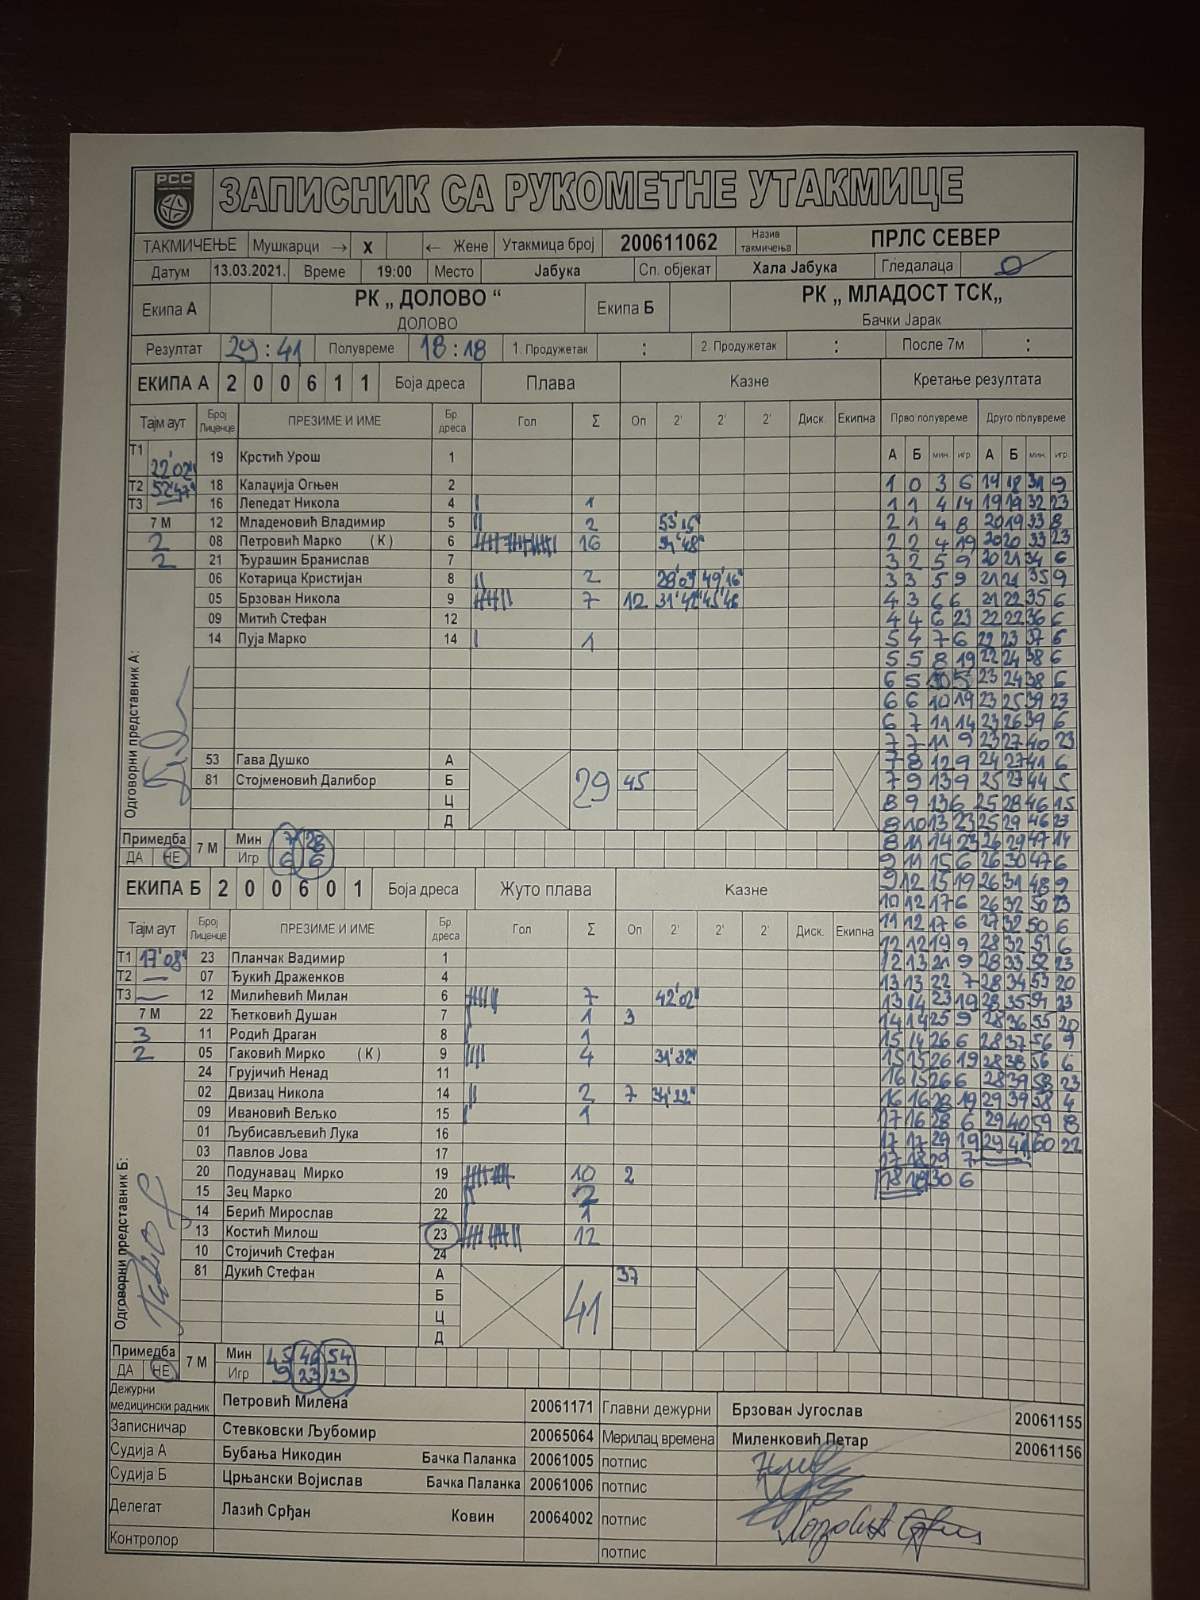 РСС
ЗАПИСНИК СА РУКОМЕТНЕ УТАКМИЦЕ
ТАКМИЧЕЊЕ Мушкарци → X ← Жене Утакмица број 200611062 Назив такмичења ПРЛС СЕВЕР
Датум 13.03.2021. Време 19:00 Место Јабука Сп. објекат Хала Јабука Гледалаца 0
Екипа А РК „ ДОЛОВО “ Екипа Б РК „ МЛАДОСТ ТСК„
ДОЛОВО Бачки Јарак
Резултат 29 : 41 Полувреме 18 : 18 1. Продужетак : 2. Продужетак : После 7м :
ЕКИПА А 2 0 0 6 1 1 Боја дреса Плава Казне Кретање резултата
Тајм аут Број Лиценце ПРЕЗИМЕ И ИМЕ Бр дреса Гол Σ Оп 2' 2' 2' Диск. Екипна Прво полувреме Друго полувреме
А Б мин. игр А Б мин. игр
Т1 22'02" 19 Крстић Урош 1
Т2 52'47" 18 Калаџија Огњен 2 1 0 3 6
Т3 16 Лепедат Никола 4 1 1 1 4 14 19 19 32 23
7 М 12 Младеновић Владимир 5 2 2 1 4 8 20 19 33 8
2 08 Петровић Марко (К) 6 16 2 2 4 19 20 20 33 23
2 21 Ђурашин Бранислав 7 3 2 5 9 20 21 34 6
06 Котарица Кристијан 8 2 49'16" 3 3 5 9 21 21 35 9
05 Брзован Никола 9 7 12 31'42" 45'46 4 3 6 6 21 22 35 6
09 Митић Стефан 12 4 4 6 23 22 22 36 6
14 Пуја Марко 14 1 5 4 7 6 22 23 37 6
5 5 8 19 22 24 38 6
6 5 10 5 23 24 38 6
6 6 10 19 23 25 39 23
6 7 11 14 23 26 39 6
7 7 11 9 23 27 40 23
53 Гава Душко А 7 8 12 9 24 27 41 6
81 Стојменовић Далибор Б 29 45 7 9 13 9 25 27 44 5
Ц 8 9 13 6 25 28 46 15
Д 8 10 13 23 25 29 46 23
Одговорни представник А:
Примедба 7 М Мин 7 28 8 11 14 23 26 29 47 14
ДА НЕ Игр 6 6 9 11 15 6 26 30 47 6
ЕКИПА Б 2 0 0 6 0 1 Боја дреса Жуто плава Казне 9 12 15 19 26 31 48 9
10 12 17 6 26 32 50 23
Тајм аут Број Лиценце ПРЕЗИМЕ И ИМЕ Бр дреса Гол Σ Оп 2' 2' 2' Диск. Екипна 11 12 17 6 27 32 50 6
12 12 19 9 28 32 51 6
Т1 17'08" 23 Планчак Вадимир 1 12 13 21 9 28 33 52 23
Т2 — 07 Ђукић Драженков 4 13 13 22 7 28 34 53 20
Т3 — 12 Милићевић Милан 6 7 42'02" 13 14 23 19 28 35 54 23
7 М 22 Ћетковић Душан 7 1 3 14 14 25 9 28 36 55 20
3 11 Родић Драган 8 1 15 14 26 6 28 37 56 9
2 05 Гаковић Мирко (К) 9 4 31'32" 15 15 26 19 28 38 56 6
24 Грујичић Ненад 11 16 15 26 6 28 39 58 23
02 Двизац Никола 14 2 7 34'22" 16 16 28 19 29 39 58 4
09 Ивановић Вељко 15 1 17 16 28 6 29 40 59 8
01 Љубисављевић Лука 16 17 17 29 19 29 41 60 22
03 Павлов Јова 17 17 18 29 7
20 Подунавац Мирко 19 10 2 18 18 30 6
15 Зец Марко 20 2
14 Берић Мирослав 22 1
13 Костић Милош 23 12
10 Стојичић Стефан 24
81 Дукић Стефан А 37
Б 41
Ц
Д
Одговорни представник Б:
Примедба 7 М Мин 45 46 54
ДА НЕ Игр 9 23 23
Дежурни медицински радник Петровић Милена 20061171 Главни дежурни Брзован Југослав 20061155
Записничар Стевковски Љубомир 20065064 Мерилац времена Миленковић Петар 20061156
Судија А Бубања Никодин Бачка Паланка 20061005 потпис
Судија Б Црњански Војислав Бачка Паланка 20061006 потпис
Делегат Лазић Срђан Ковин 20064002 потпис
Контролор потпис